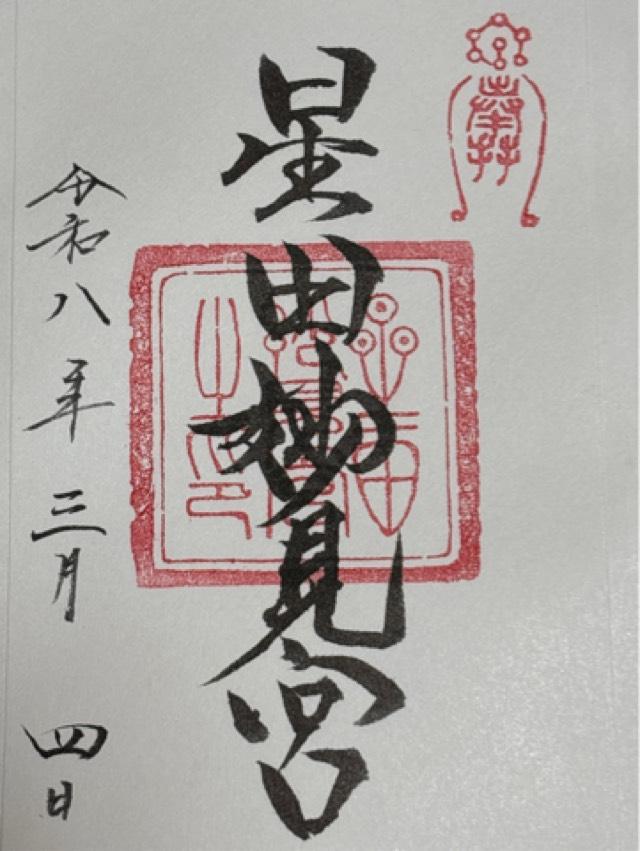 奉拝
星田妙見宮
令和八年三月四日